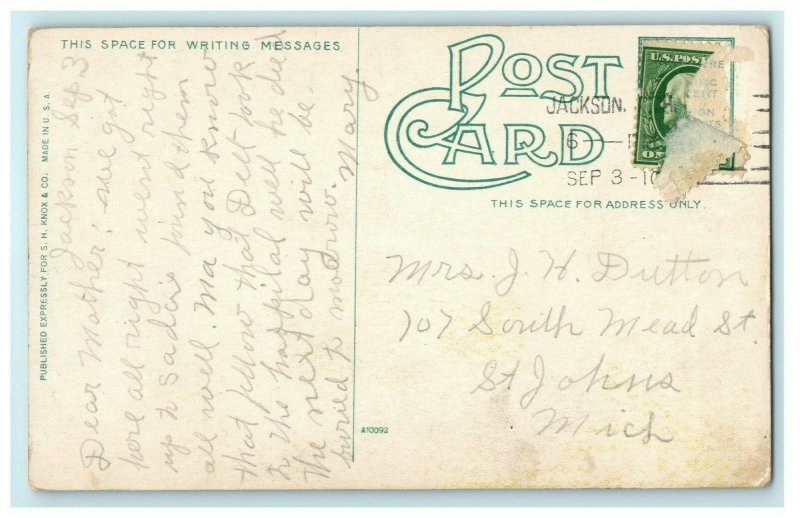 THIS SPACE FOR WRITING MESSAGES
POST
CARD
U.S. POST
JACKSON,
SEP 3-10
THIS SPACE FOR ADDRESS ONLY.
PUBLISHED EXPRESSLY FOR S. H. KNOX & CO. MADE IN U. S. A
Jackson Sep 3
Dear Mother, We got
here all right went right
up to Sadies found them
all well. Ma you know
that fellow that Dell took
to the hospital well he died
the next day will be
buried to morrow. Mary.
Mrs. J. H. Dutton
707 South Mead St.
St Johns
Mich
A10092